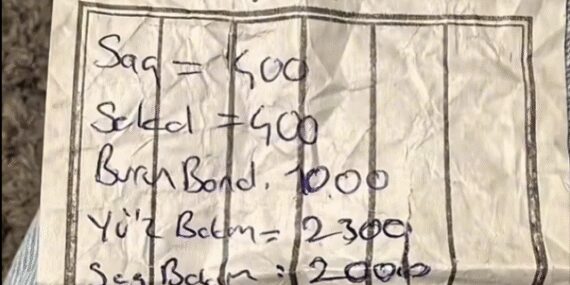 Saç = 400
Sakal = 400
Burun Band. 1000
Yüz Bakım = 2300
Saç Bakım = 2000